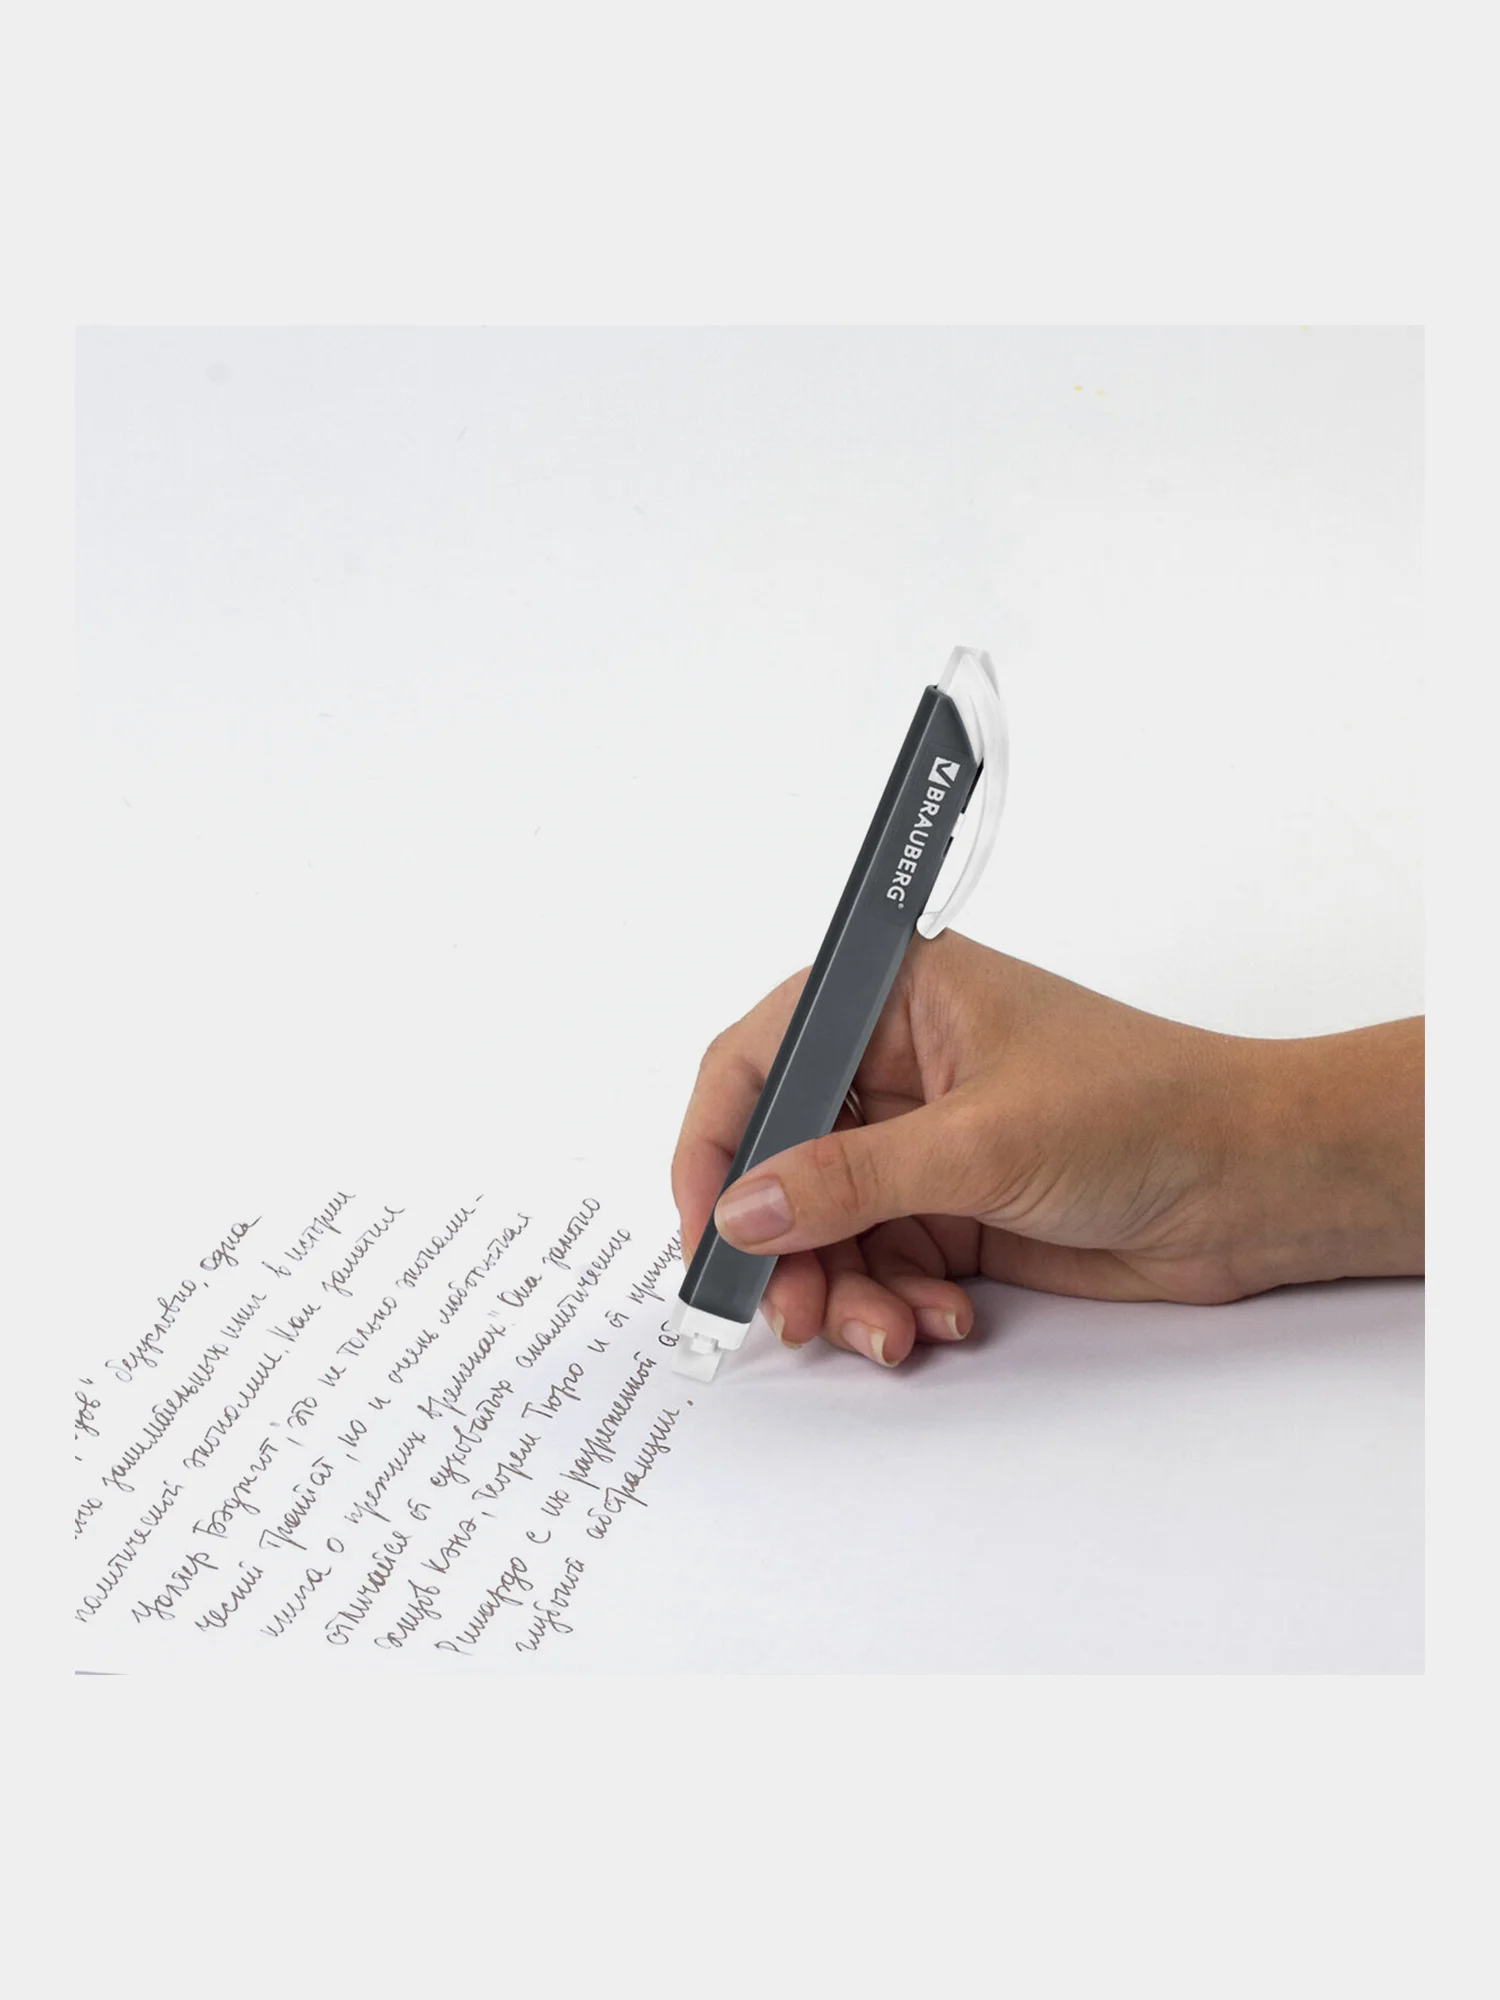 BRAUBERG®
"дов" безусловно, одна
занимательных книг в истории
политической экономии. Как заметил
Уолтер Бэджгот, "это не только экономи-
ческий трактат, но и очень любопытная
книга о прежних временах". Она заметно
отличается от суховатых аналитических
Кэнэ, Тюрго и от
Рикардо с их разреженной
глубокой абстракции.